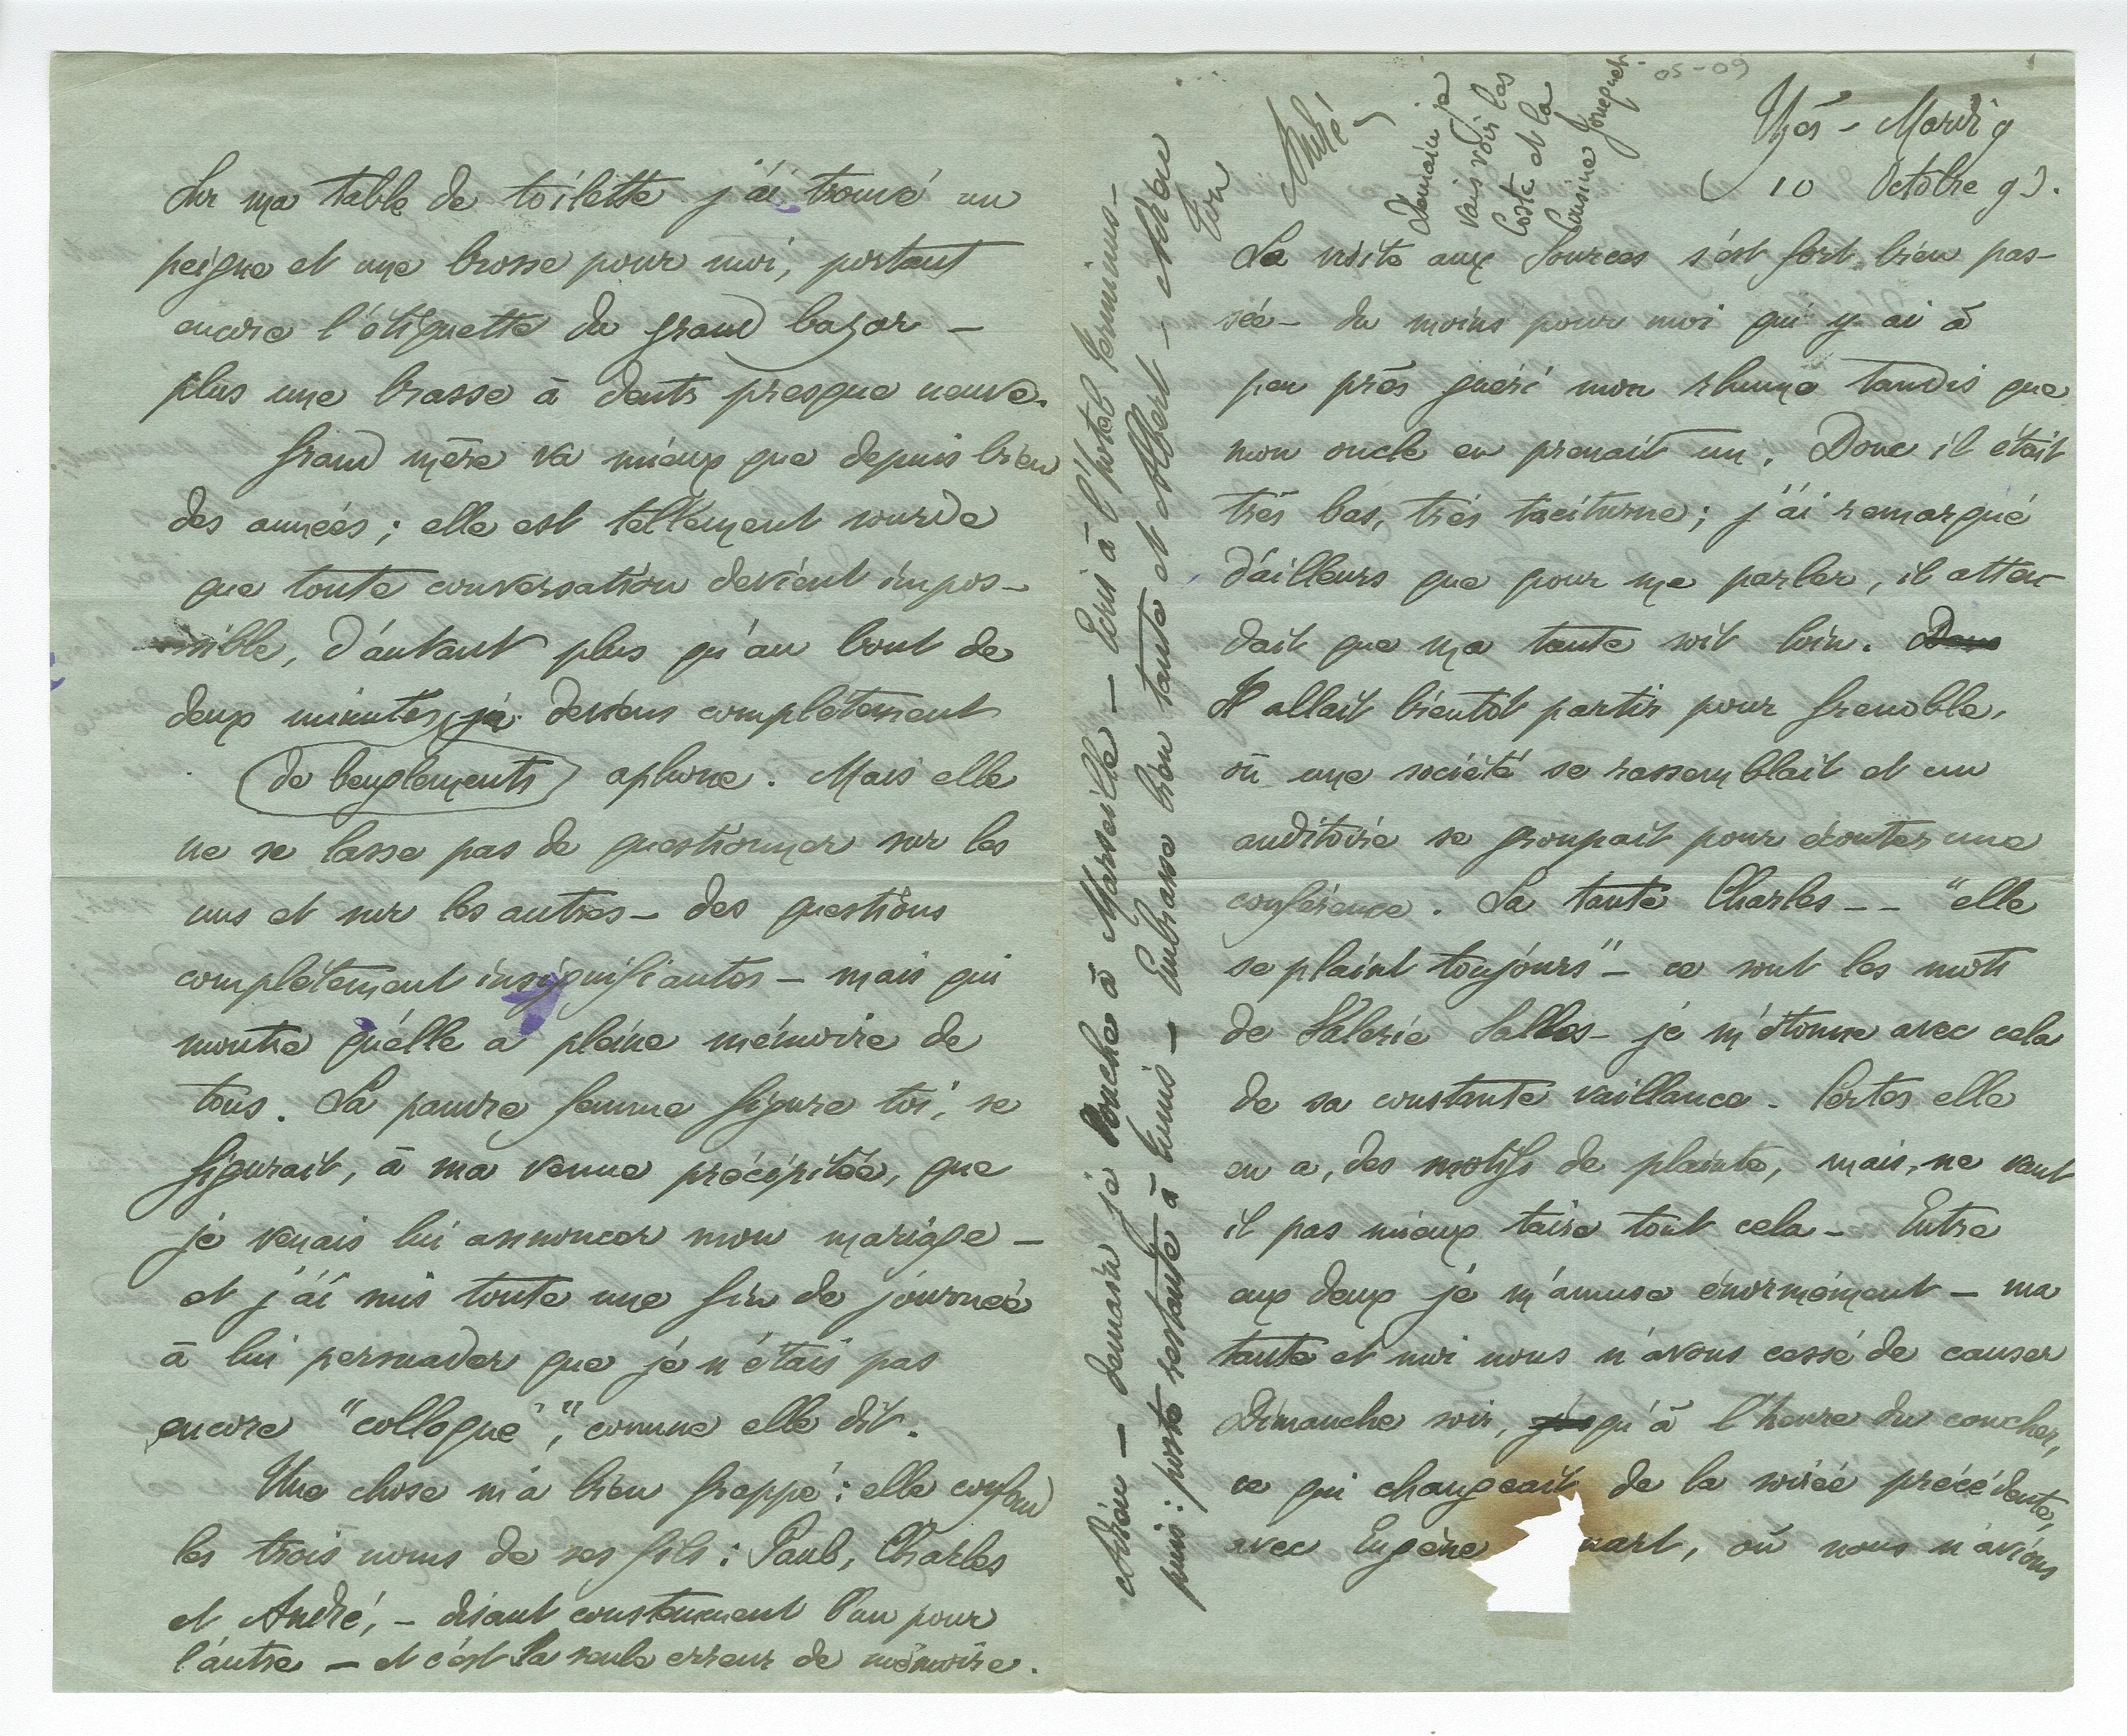 05-09
Uzès - Mardi 9
( 10 Octobre 93.
La visite aux Sources s'est fort bien pas-
sée - du moins pour moi qui y ai à
peu près guéri mon rhume tandis que
mon oncle en prenait un. Donc il était
très bas, très taciturne ; j'ai remarqué
d'ailleurs que pour me parler, il atten-
dait que ma tante soit loin. Dans
Il allait bientôt partir pour Grenoble,
où une société se rassemblait et un
auditoire se groupait pour écouter une
conférence. La tante Charles -- "elle
se plaint toujours" - ce sont les mots
de Valérie Salles - je m'étonne avec cela
de sa constante vaillance. Certes elle
en a, des motifs de plainte, mais, ne vaut
il pas mieux taire tout cela - Entre
eux deux je m'amuse énormément - ma
tante et moi nous n'avons cessé de causer
Dimanche soir, jusqu'à l'heure du coucher,
ce qui changeait de la soirée précédente,
avec Eugène wart, où nous n'avions
Sur ma table de toilette j'ai trouvé un
peigne et une brosse pour moi, portant
encore l'étiquette du grand bazar -
plus une brosse à dents presque neuve.
Grand mère va mieux que depuis bien
des années ; elle est tellement sourde
que toute conversation devient impos-
sible, d'autant plus qu'au bout de
deux minutes, je deviens complètement
(de beuglements) aphone. Mais elle
ne se lasse pas de questionner sur les
uns et sur les autres - des questions
complètement insignifiantes - mais qui
montre qu'elle a pleine mémoire de
tous. La pauvre femme figure toi, se
figurait, à ma venue précipitée, que
je venais lui annoncer mon mariage -
et j'ai mis toute une fin de journée
à lui persuader que je n'étais pas
encore "colloqué", comme elle dit.
Une chose m'a bien frappé : elle confond
les trois noms de ses fils : Paul, Charles
et André, - disant constamment l'un pour
l'autre - et c'est la seule erreur de mémoire.
Adieu - demain je couche à Marseille - Ecris à l'hotel Terminus -
puis : poste restante à Tunis - Embrasse bien tante et Albert - Adieu
Ton
André -
Demain je
vais voir les
Coste et la
Cousine